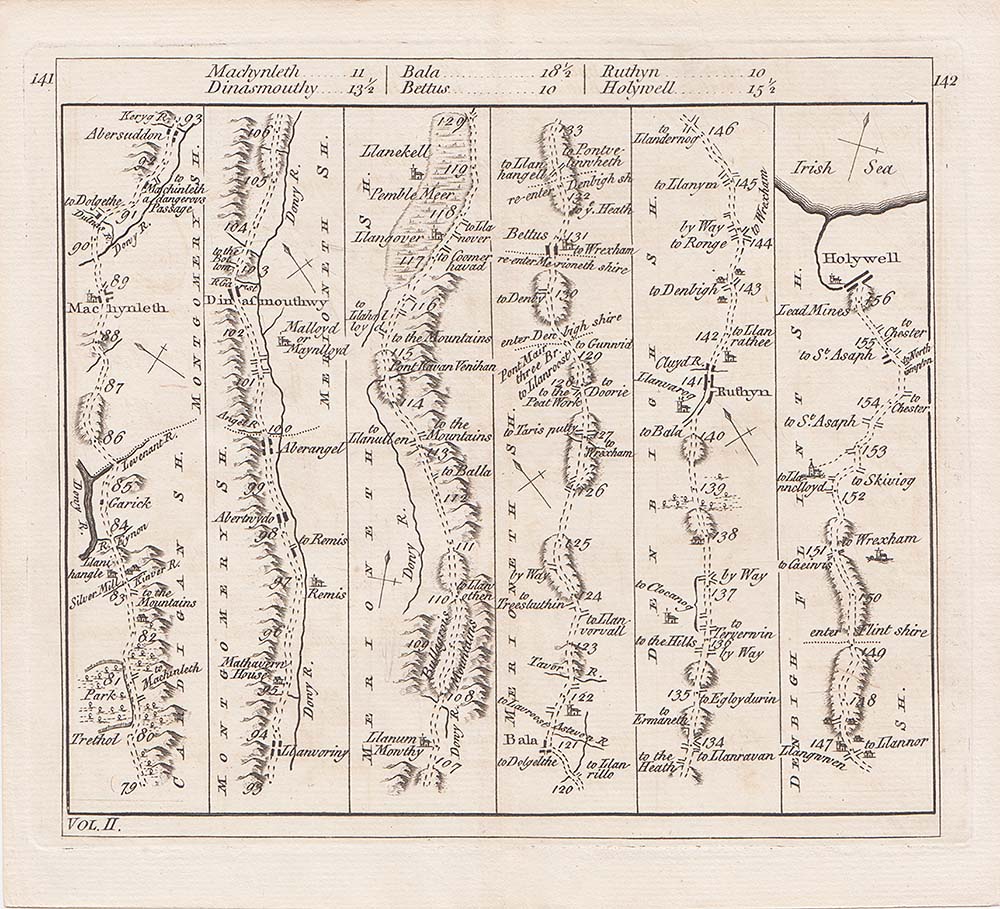 141
Machynleth 11
Dinasmouthy 13½
Bala 18½
Bettus 10
Ruthyn 10
Holywell 15½
142
Keryg R.
93
Abersuddon
92
to
Machinleth
a dangerous
Passage
to Dolgethe
91
Dulas R.
Dowy R.
90
89
Machynleth
88
87
86
Levenant R.
85
Garick
Dowy R.
84
R. Kynon
Llani
hangle
Silver Mill
Kinver R.
83
to the
Mountains
82
to
Machinleth
81
Park
Trethol
80
79
CARDIGAN SH.
MONTGOMERY SH.
106
105
Dowy R.
104
to the
Bot
tom
103
Dinasmouthwy
102
Malloyd
or
Maynlloyd
101
Angel R.
100
Aberangel
99
Abertwydo
98
to Remis
97
Remis
96
Mathavern
House
95
Dowy R.
94
Llanvoring
93
MONTGOMERY SH.
MERIONETH SH.
120
Llanekell
119
Pemble Meer
118
to Lla
nover
Llangover
117
to Coomer
havad
116
to the Mountains
115
Pont Ravan Venihan
114
to
Llanullen
to the
Mountains
113
to Balla
112
Dowy R.
111
to Llan
othen
110
109
Bulderous
Mountains
108
Llanum
Mowthy
Dowy R.
107
MERIONETH SH.
133
to Pontve
linnheth
to Llan
hangell
re-enter Denbigh sh
132
to y. Heath
Bettus
131
to Wrexham
re-enter Merioneth shire
to Denby
130
enter Denbigh shire
to Gunvid
Pont Mair
three Br.
to Llanroost
129
128
to
Doorie
to the
Peat Work
to Taris pully
127
to
Wrexham
126
125
by Way
to
Treesluthin
124
to Llan
vorvall
123
Tavor R.
122
to Lawrense
Asteven R.
Bala
121
to Dolgelthe
to Llan
rillo
120
MERIONETH SH.
to
Llandernog
146
to Llanym
145
to Wrexham
by Way
to Ronge
144
to Denbigh
143
142
to Llan
rathee
Cluyd R.
Llanvareg
141
Ruthyn
to Bala
140
139
138
by Way
137
to Clocanog
to
Teryerwin
to the Hills
136
by Way
135
to Egloydurin
to
Ermaneth
134
to the
Heath
to Llanravan
DENBIGH SH.
Irish Sea
Holywell
156
Lead Mines
to
Chester
155
to St. Asaph
to North
154
to
Chester
to St. Asaph
153
to Lla
nnolloyd
to Skiviog
152
to Wrexham
151
to Caeirvis
150
enter Flint shire
149
148
147
to Llannor
Llangwnen
DENBIGH SH.
FLINT SH.
VOL. II.